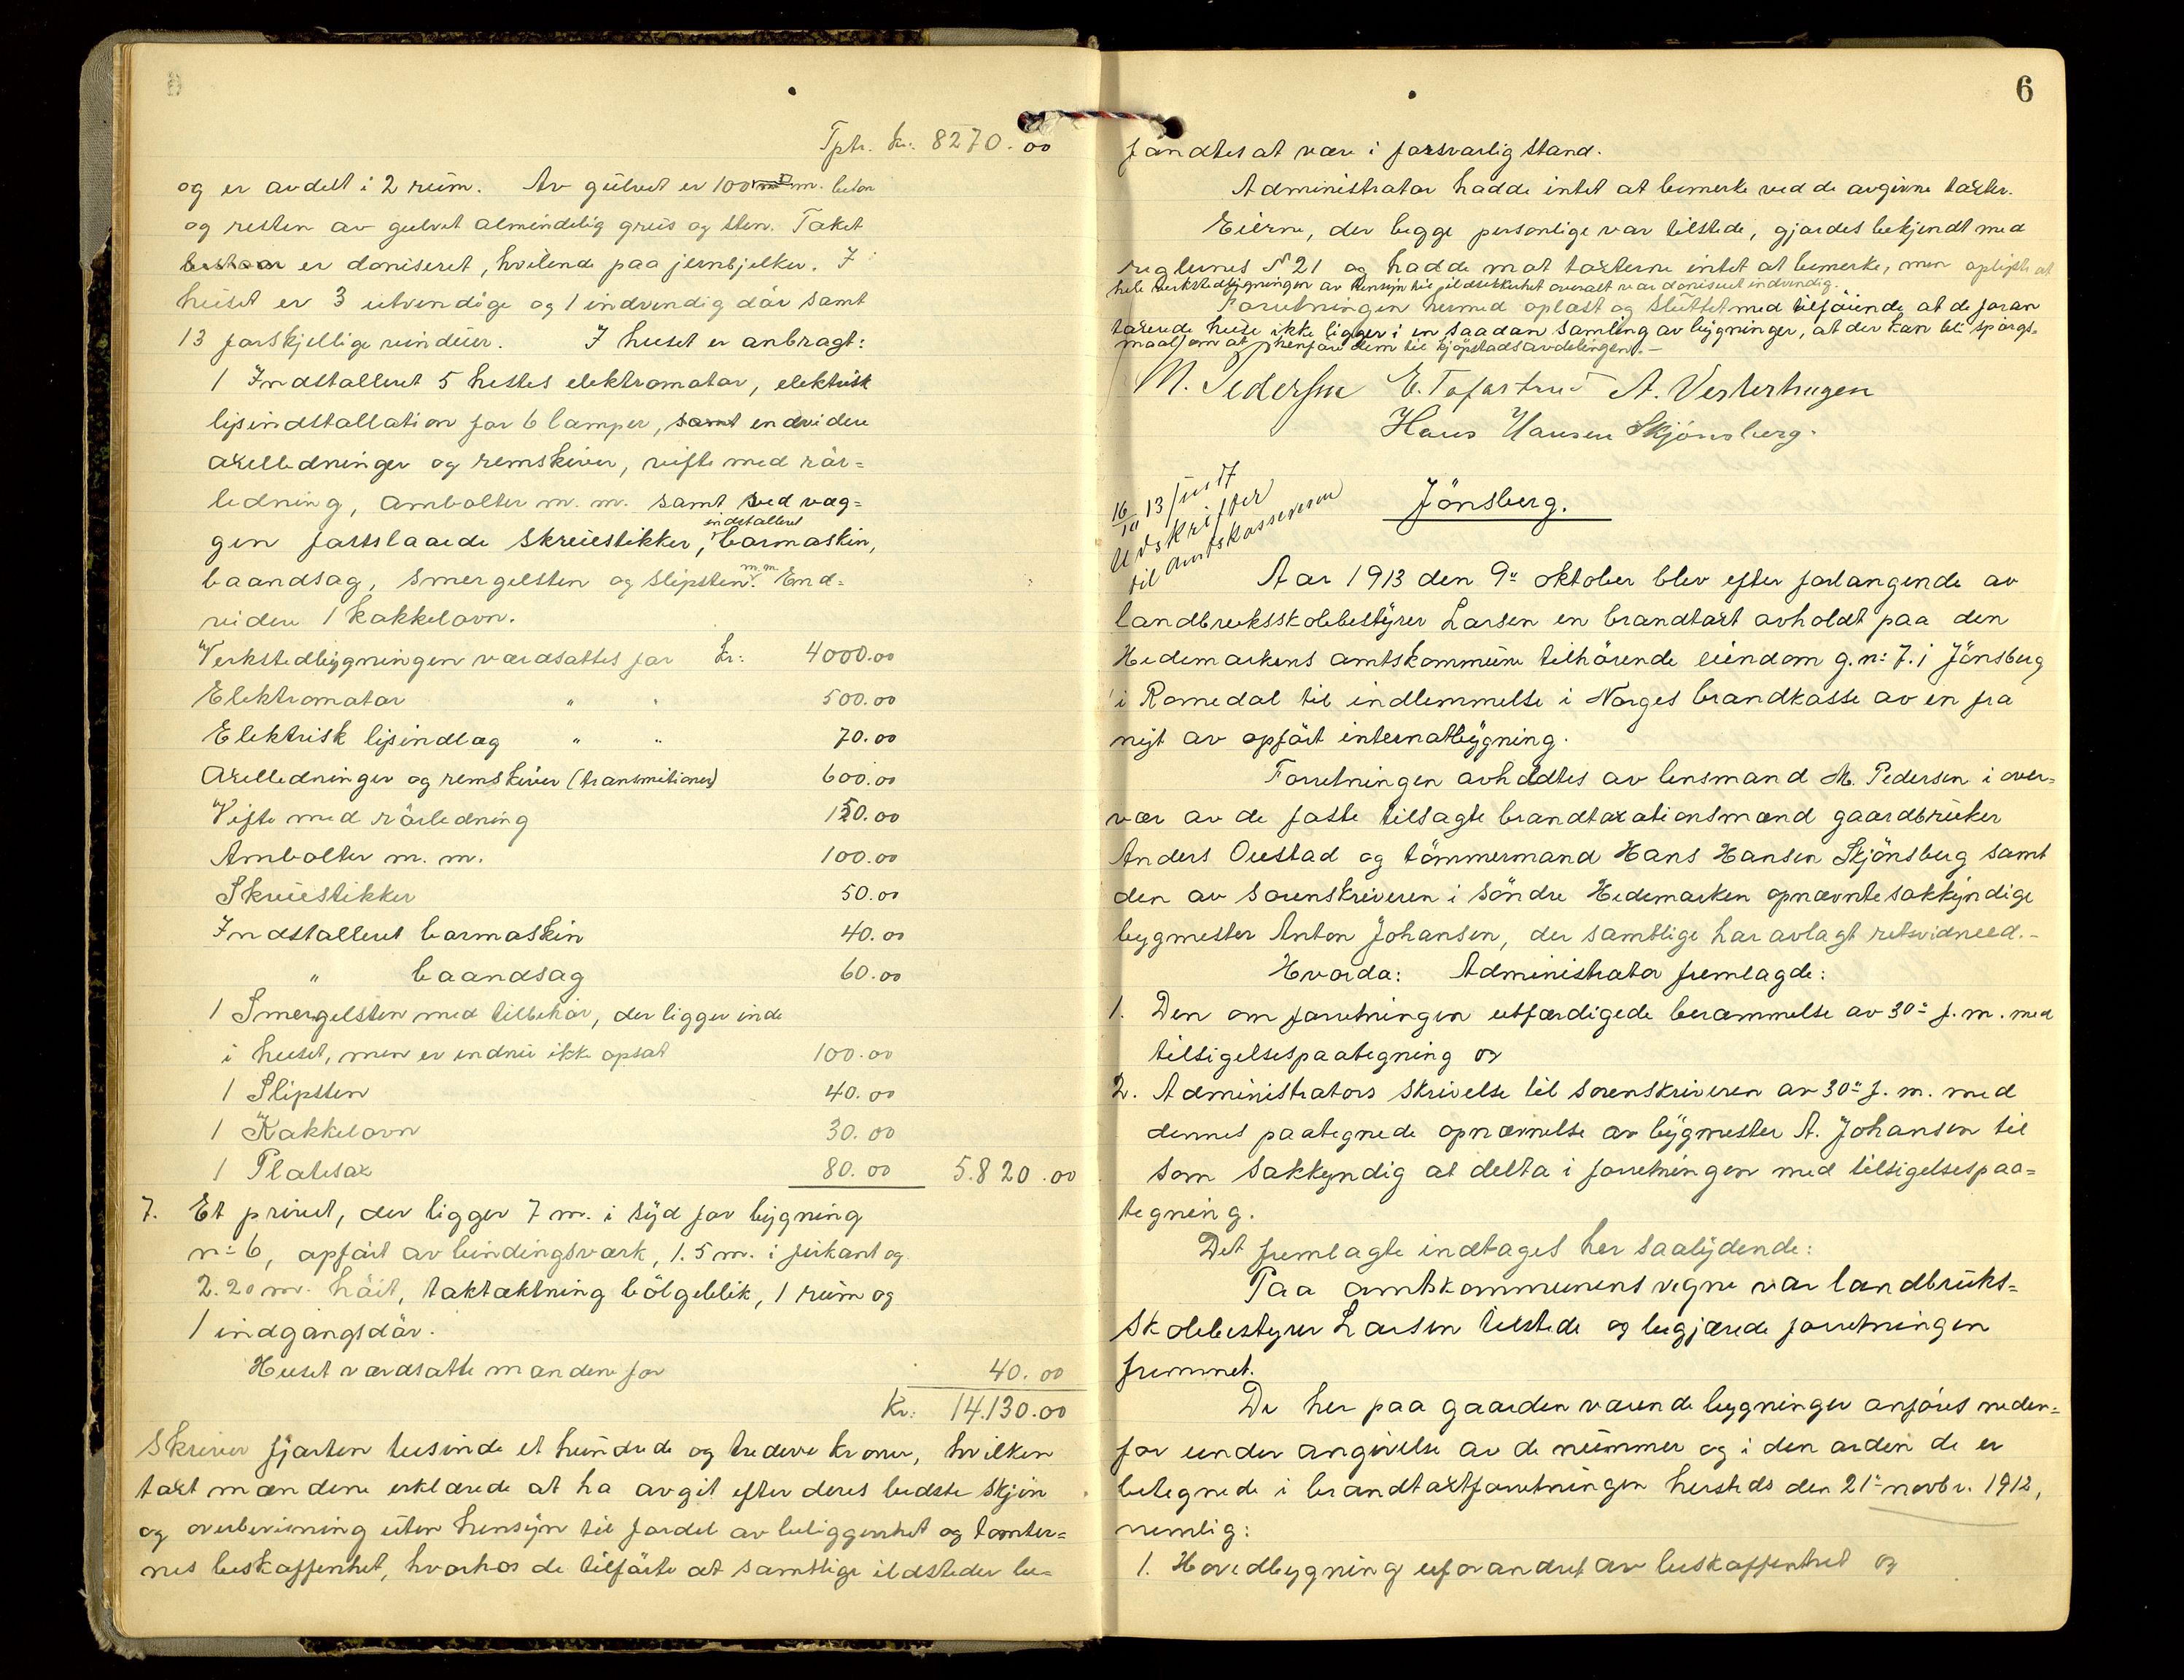 Tptr. Kr. 8270.00
og er avdelt i 2 rum. Av gulvet er 100 m. beton
og resten av gulvet almindelig grus og sten. Taket
bestaar er doniseret, hvilende paa jernbjelker. I
huset er 3 utvendige og 1 indvendig dør samt
13 forskjellige vinduer. I huset er anbragt:
1 Indstalleret 5 hestes elektromotor, elektrisk
lysindstallation for 6 lamper, samt endvidere
axelledninger og remskiver, vifte med rør=
ledning, ambolter m. m. samt ved væg=
gen fastslaaede skruestikker, indstalleret bormaskin,
baandsag, smergelsten og slipsten m.m. End=
videre 1 kakkelovn.
Verkstedbygningen værdsattes for Kr: 4000.00
Elektromotor " " 500.00
Elektrisk lysindlæg " " 70.00
Axelledninger og remskiver (transmitioner) 600.00
Vifte med rørledning 150.00
Ambolter m. m. 100.00
Skruestikker 50.00
Indstalleret bormaskin 40.00
" baandsag 60.00
1 Smergelsten med tilbehør, der ligger inde
i huset, men er endnu ikke opsat 100.00
1 Slipsten 40.00
1 Kakkelovn 30.00
1 Platesax 80.00 5.820.00
7. Et privet, der ligger 7 m. i syd for bygning
n: 6, opført av bindingsværk, 1.5 m. i firkant og
2.20 m. høit, taktækning bølgeblik, 1 rum og
1 indgangsdør.
Huset værdsatte mændene for 40.00
Kr: 14.130.00
Skriver fjorten tusinde et hundrede og tredeve kroner, hvilken
taxt mændene erklærede at ha avgit efter deres bedste skjøn
og overbevisning uten hensyn til fordel av beliggenhet og tomter=
nes beskaffenhet, hvorhos de tilførte at samtlige ildsteder be=
6
fandtes at være i forsvarlig stand.
Administrator hadde intet at bemerke ved de avgivne taxter.
Eierne, der begge personlige var tilstede, gjordes bekjendt med
reglernes § 21 og hadde mot taxterne intet at bemerke, men oplyste at
hele verkstedbygningen av hensyn til ildsikkerhet overalt var doniseret indvendig.
Forretningen hermed oplæst og sluttet med tilføiende at de foran
taxerede huse ikke ligger i en saadan samling av bygninger, at der kan bli spørgs=
maal om at henføre dem til kjøpstadsavdelingen. -
M. Pedersen E. Tofastrud A. Vesterhagen
Hans Hansen Skjønsberg.
16/10 13
Udskrifter
til amtskassereren
Jønsberg.
Aar 1913 den 9de oktober blev efter forlangende av
landbruksskolebestyrer Larsen en brandtaxt avholdt paa den
Hedemarkens amtskommune tilhørende eiendom g.n: 7.1 Jønsberg
i Romedal til indlemmelse i Norges brandkasse av en fra
nyt av opført internatbygning.
Forretningen avholdtes av lensmand M. Pedersen i over=
vær av de faste tilsagte brandtaxationsmænd gaardbruker
Anders Oustad og tømmermand Hans Hansen Skjønsberg samt
den av sorenskriveren i søndre Hedemarken opnævnte sakkyndige
bygmester Anton Johansen, der samtlige har avlagt retsvidneed. -
Hvorda: Administrator fremlagde:
1. Den om forretningen utfærdigede berammelse av 30te f. m. med
tilsigelsespaategning og
2. Administrators skrivelse til sorenskriveren av 30te f. m. med
dennes paategnede opnævnelse av bygmester A. Johansen til
som sakkyndig at delta i forretningen med tilsigelsespaa=
tegning.
Det fremlagte indtages her saalydende:
Paa amtskommunens vegne var landbruks=
skolebestyrer Larsen tilstede og begjærede forretningen
fremmet.
De her paa gaarden værende bygninger anføres neden=
for under angivelse av de nummer og i den orden de er
betegnede i brandtaxtforretningen hersteds den 21de novbr. 1912,
nemlig:
1. Hovedbygning uforandret av beskaffenhet og